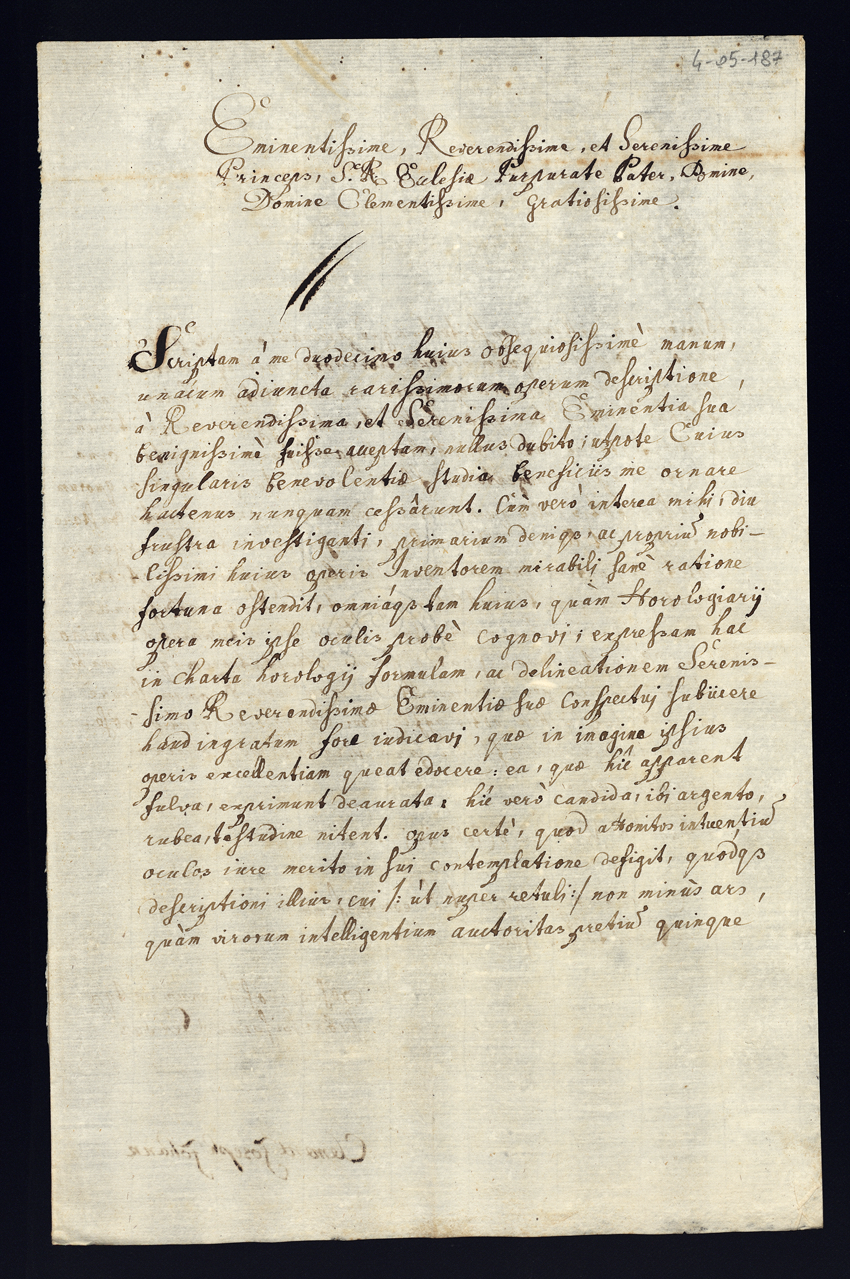 4-05-187
Eminentissime, Reverendissime, et Serenissime
Princeps, S. R. Eclesiæ Purpurate Pater, Domine,
Domine Clementissime, Gratiosissime.
Scriptam à me duodecimo huius obsequiosissimè manum,
unacum adiuncta rarissimorum operum descriptione,
à Reverendissima, et Serenissima Eminentia sua
benignissimè fuisse acceptam, nullus dubito; utpote Cuius
singularis benevolentiæ studia beneficiis me ornare
hactenus nunquam cessârunt. Cùm verò interea mihi, diu
frustra investiganti, primarium deniqs, ac propriū nobi-
lissimi huius operis Inventorem mirabilj sanè ratione
fortuna ostendit, omniáqs tam huius, quàm Horologiarij
opera meis ipse oculis probè cognovi; expressam hac
in charta horologij formulam, ac delineationem Serenis-
simo Reverendissimæ Eminentiæ suæ Conspectuj subiicere
haud ingratum fore iudicavj, quæ in imagine ipsius
operis excellentiam queat edocere: ea, quæ hîc apparent
fulva, exprimunt deaurata, hîc verò candida, ibi argento,
rubea, testudine nitent. Opus certè, quod attonitos intuentiū
oculos iure merito in sui contemplatione defigit, quodqs
descriptioni illius, cui /: ùt nuper retuli :/ non minùs ars,
quàm virorum intelligentium auctoritas pretiū quinque